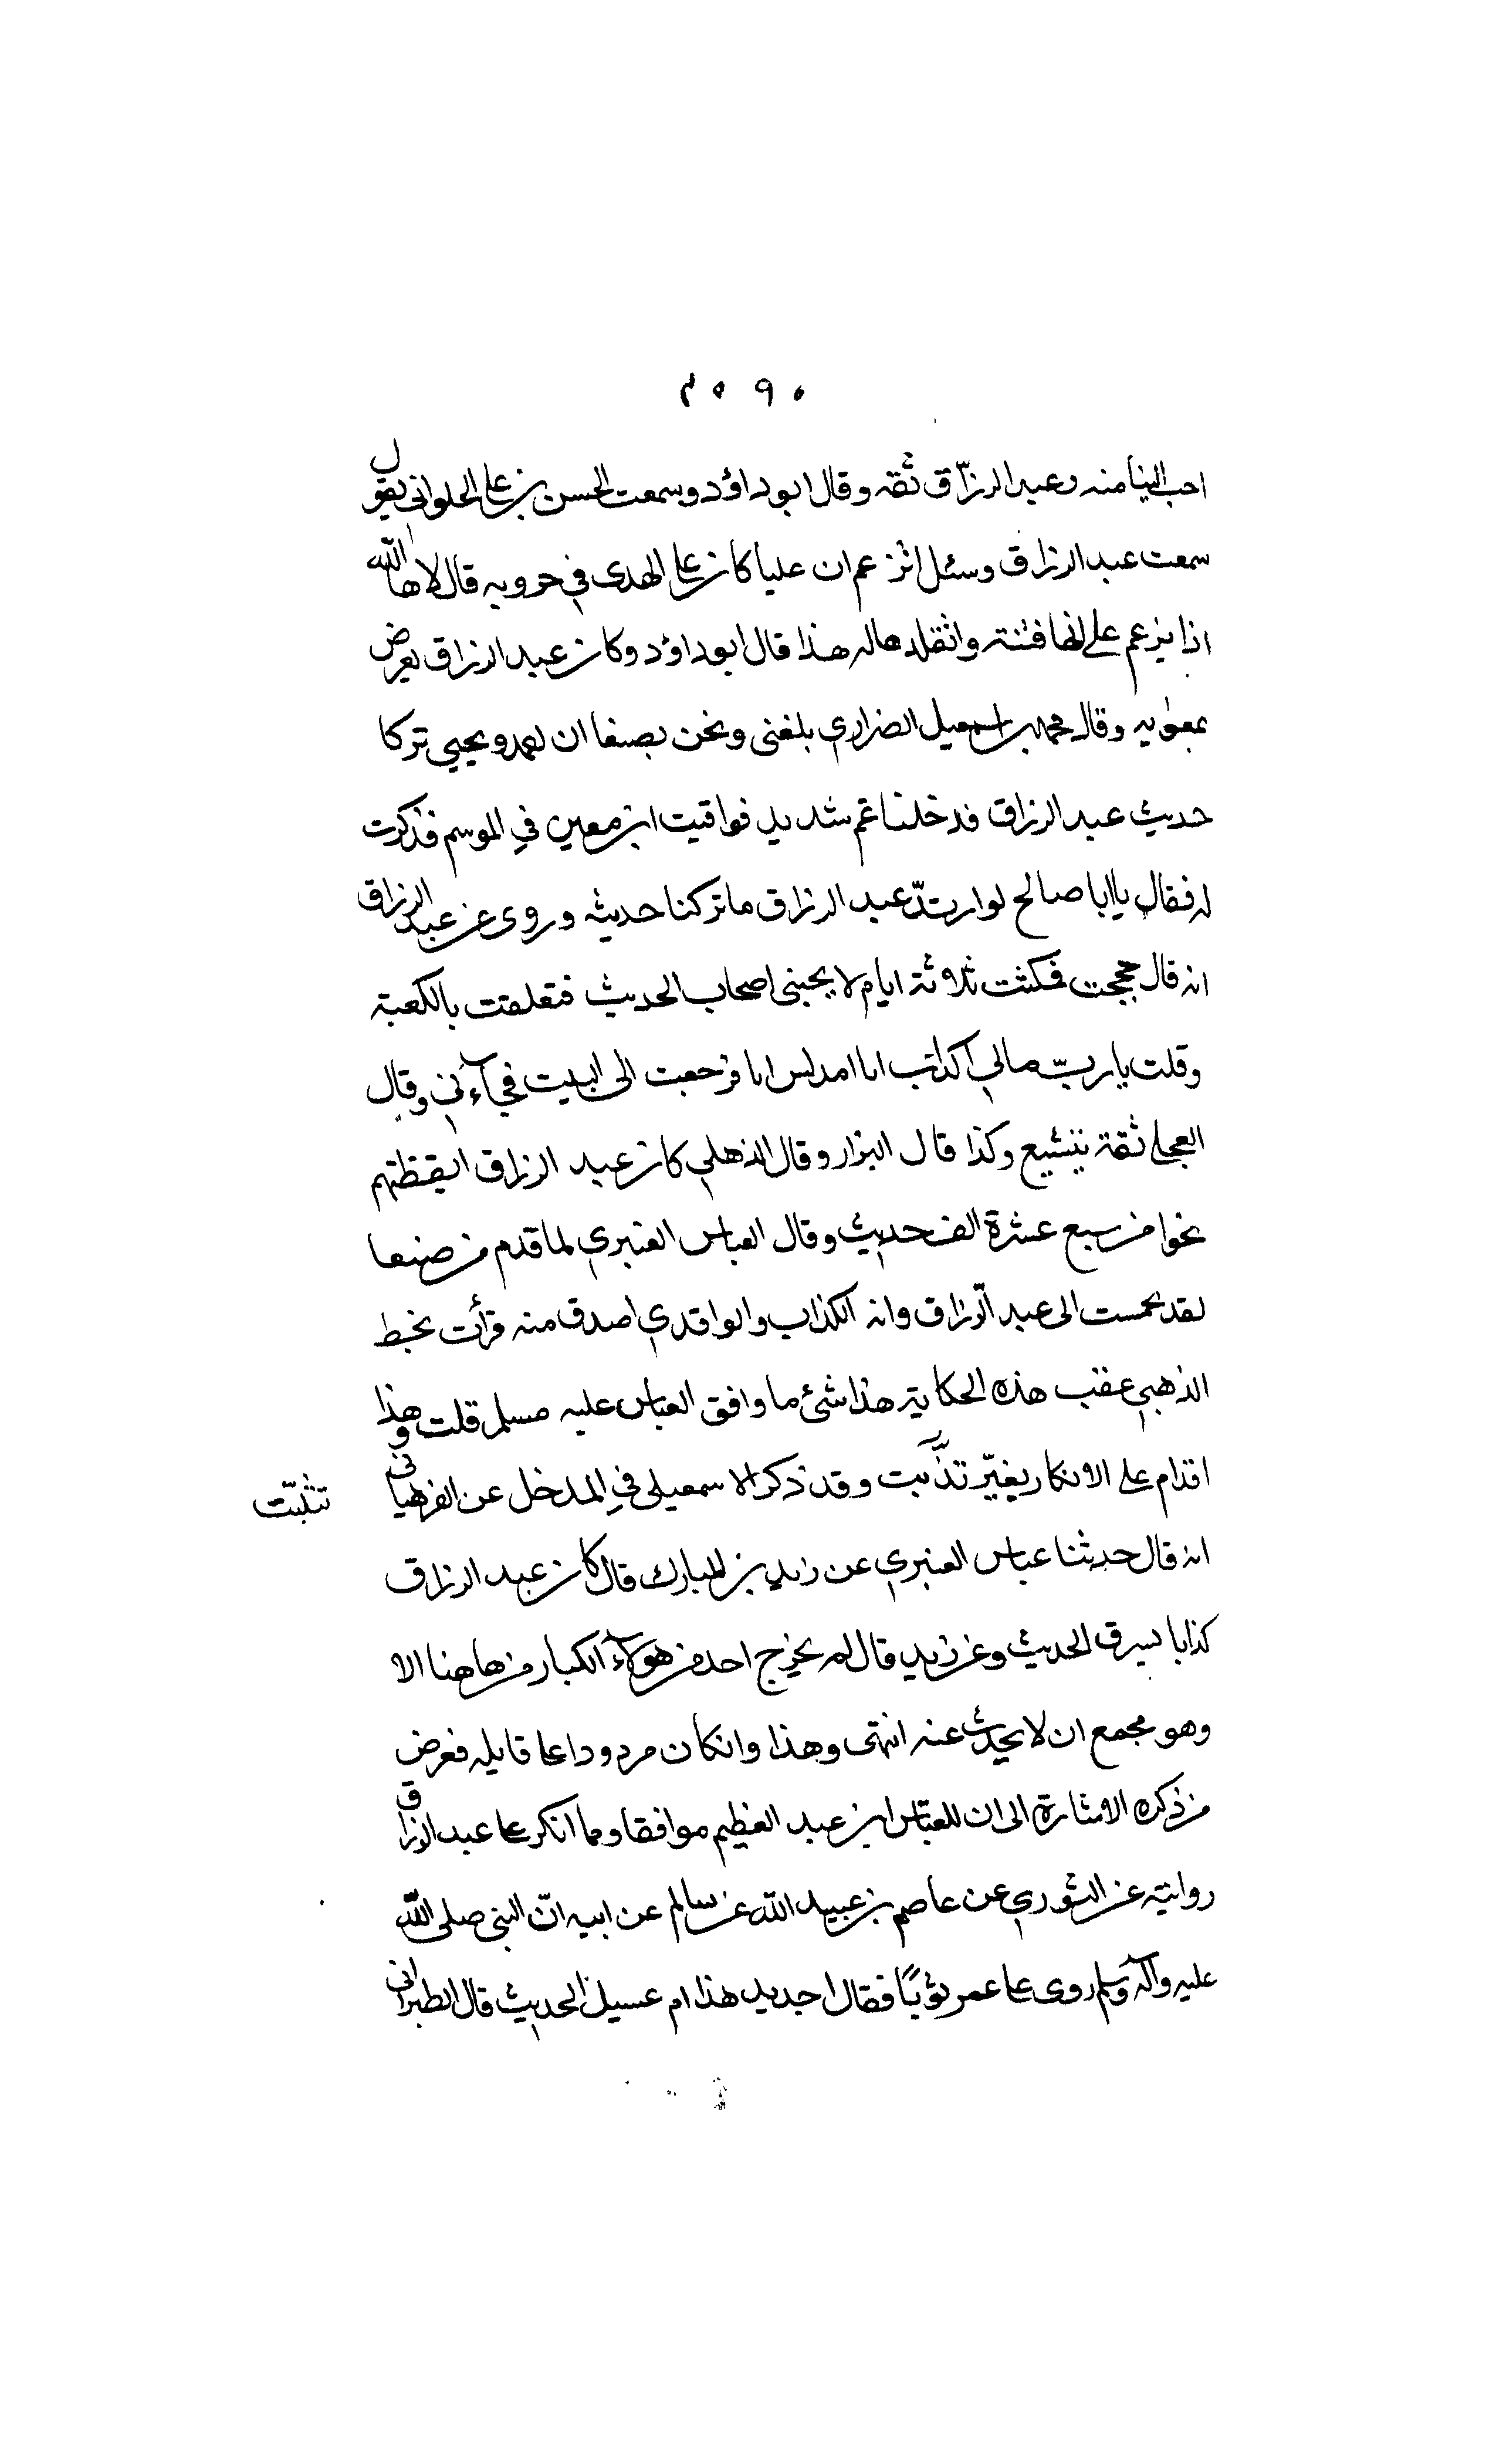 ٢٠٩٠
احب الينا منه وعبد الرزّاق ثقه وقال ابو داؤد وسمعت الحسن بن علي الحلواني يقول
سمعت عبد الرزاق وسئل اتزعم ان عليا كان على الهدى في حروبه قال لاها الله
اذا يزعم على انها فتنة واتقلدها له هذا قال ابو داؤد وكان عبد الرزاق يعرض
بمعويه وقال محمد بن اسمعيل الضراري بلغنى ونحن بصنعا ان احمد ويحيي تركا
حديث عبد الرزاق فدخلنا غم شديد فوافيت ابن معين في الموسم فذكرت
له فقال يا ابا صالح لو ارتدّ عبد الرزاق ما تركنا حديثه وروى عن عبد الرزاق
انه قال حججت فمكثت ثلاثة ايام لا يجيني اصحاب الحديث فتعلقت بالكعبة
وقلت يا ربّ مالي اكذاب انا امدلس انا فرجعت الى البيت فجآءني وقال
العجلي ثقة يتشيع وكذا قال البزار وقال الذهلي كان عبد الرزاق ايقظهم
نحوا من سبع عشرة الف حديث وقال العباس العنبري لما قدم من صنعا
لقد تجمست الى عبد الرّزاق وانه الكذاب والواقدي اصدق منه قرأت بخط
الذهبي عقب هذه الحكاية هذا شئ ما وافق العباس عليه مسلم قلت وهذا
اقدام على الانكار بغيرّ تذَّبت وقد ذكر الاسمعيلي في المدخل عن الفرهياني
تثبّت
انه قال حدثنا عباس العنبري عن زيد بن المبارك قال كان عبد الرزاق
كذابا يسرق الحديث وعن زيد قال لم يخرج احد من هولآء الكبار من هاهنا الا
وهو مجمع ان لا يحدث عنه انتهى وهذا وانكان مردودا على قايله فغرض
من ذكره الاشارة الى ان للعبّاس بن عبد العظيم موافقا ومما انكر على عبد الرزاق
روايته عن الثوري عن عاصم بن عبيد الله عن سالم عن ابيه انّ النبي صلى اللّه
عليه وآله وسلم روى على عمر ثوبًا فقال اجديد هذا ام غسيل الحديث قال الطبراني